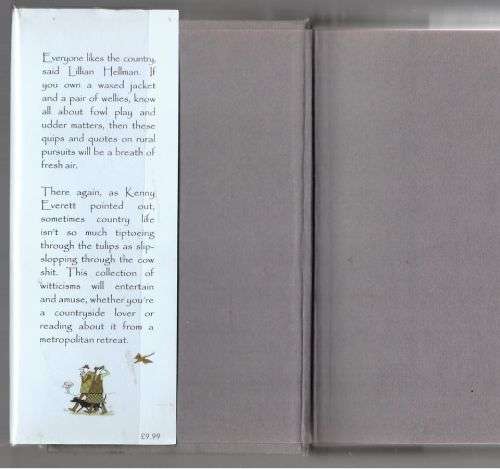 Everyone likes the country,
said Lillian Hellman. If
you own a waxed jacket
and a pair of wellies, know
all about fowl play and
udder matters, then these
quips and quotes on rural
pursuits will be a breath of
fresh air.
There again, as Kenny
Everett pointed out,
sometimes country life
isn't so much tiptoeing
through the tulips as slip-
slopping through the cow
shit. This collection of
witticisms will entertain
and amuse, whether you're
a countryside lover or
reading about it from a
metropolitan retreat.
£9.99